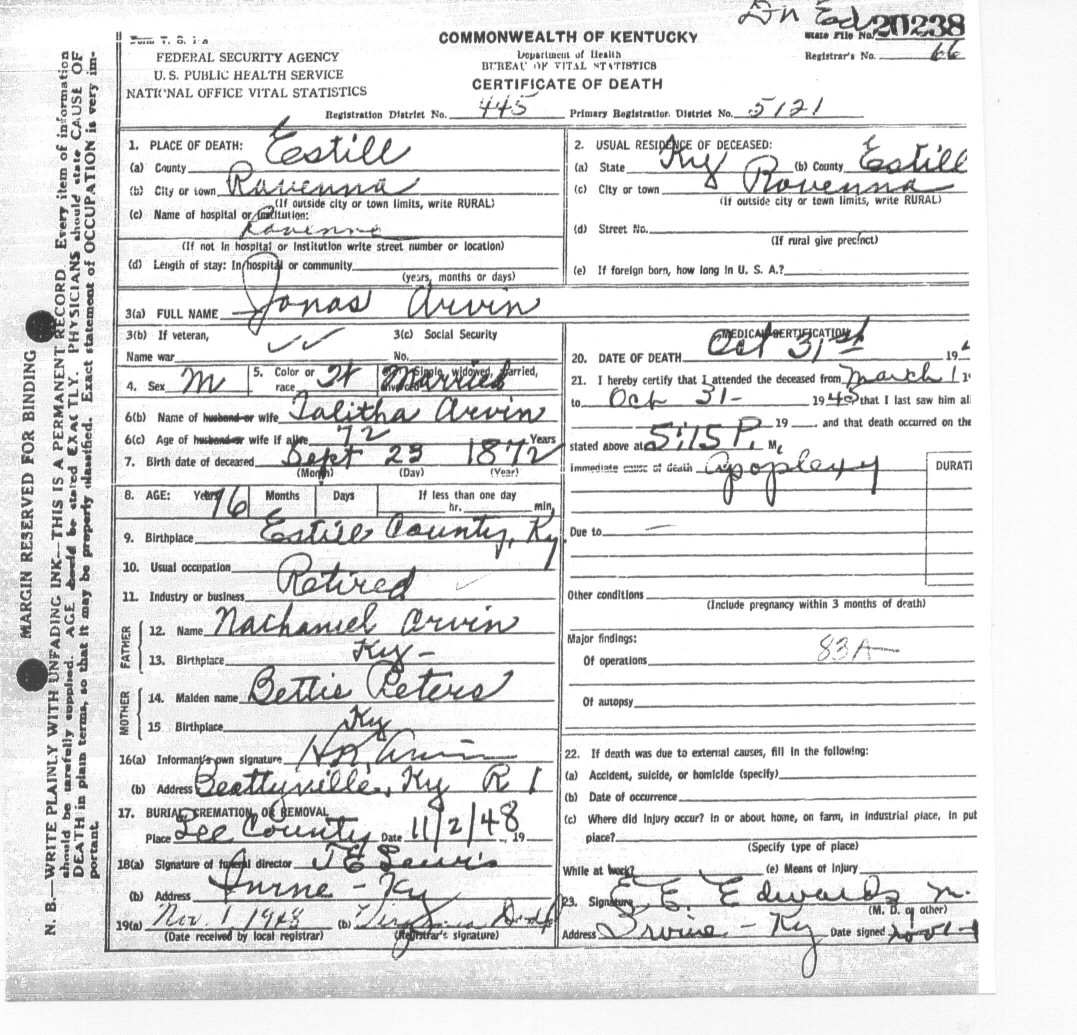 20238
State File No.
COMMONWEALTH OF KENTUCKY
Department of Health
BUREAU OF VITAL STATISTICS
CERTIFICATE OF DEATH
FEDERAL SECURITY AGENCY
U. S. PUBLIC HEALTH SERVICE
NATIONAL OFFICE VITAL STATISTICS
Registrar's No. 66
Registration District No. 445 Primary Registration District No. 5121
1. PLACE OF DEATH: Estill
(a) County
(b) City or town Ravenna
(If outside city or town limits, write RURAL)
(c) Name of hospital or institution:
Ravenna
(If not in hospital or institution write street number or location)
(d) Length of stay: In hospital or community
(years, months or days)
2. USUAL RESIDENCE OF DECEASED:
(a) State Ky (b) County Estill
(c) City or town Ravenna
(If outside city or town limits, write RURAL)
(d) Street No.
(If rural give precinct)
(e) If foreign born, how long in U. S. A.?
3(a) FULL NAME Jonas Arvin
3(b) If veteran,
Name war
3(c) Social Security
No.
4. Sex M 5. Color or race Married
6(b) Name of husband or wife Talitha Arvin
6(c) Age of husband or wife if alive 72 Years
7. Birth date of deceased Sept 23 1872
(Month) (Day) (Year)
8. AGE: Years 76 Months Days If less than one day
hr. min.
9. Birthplace Estill County, Ky.
10. Usual occupation Retired
11. Industry or business
FATHER
12. Name Nathaniel Arvin
13. Birthplace Ky-
MOTHER
14. Maiden name Bettie Peters
15 Birthplace Ky
16(a) Informant's own signature Arvin
(b) Address Beattyville, Ky R 1
17. BURIAL, CREMATION, OR REMOVAL
Place Lee County Date 11/2/48, 19
18(a) Signature of funeral director
(b) Address Irvine - Ky
19(a) Nov. 1 1948 (b) Virginia
(Date received by local registrar) (Registrar's signature)
MEDICAL CERTIFICATION
20. DATE OF DEATH Oct 31st 19
21. I hereby certify that I attended the deceased from March 1 19
to Oct 31- 1948 that I last saw him ali
19 and that death occurred on the
stated above at 5:15 P. M.
Immediate cause of death Apoplexy
DURATI
Due to —
Other conditions
(Include pregnancy within 3 months of death)
Major findings:
Of operations 83A
Of autopsy
22. If death was due to external causes, fill in the following:
(a) Accident, suicide, or homicide (specify)
(b) Date of occurrence
(c) Where did injury occur? In or about home, on farm, in industrial place, in pub
place?
(Specify type of place)
While at work? (e) Means of injury
23. Signature E. E. Edwards M.
(M. D. or other)
Address Irvine - Ky Date signed Nov 1-
MARGIN RESERVED FOR BINDING
N. B.—WRITE PLAINLY WITH UNFADING INK—THIS IS A PERMANENT RECORD Every item of information
should be carefully supplied. AGE should be stated EXACTLY. PHYSICIANS should state CAUSE OF
DEATH in plain terms, so that it may be properly classified. Exact statement of OCCUPATION is very im-
portant.